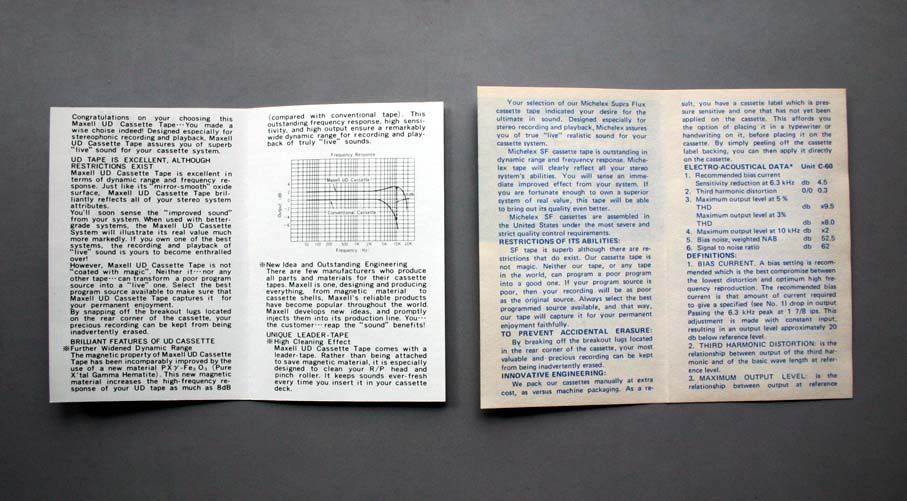 Congratulations on your choosing this
Maxell UD Cassette Tape···You made a
wise choise indeed! Designed especially for
stereophonic recording and playback, Maxell
UD Cassette Tape assures you of superb
"live" sound for your cassette system.
UD TAPE IS EXCELLENT, ALTHOUGH
RESTRICTIONS EXIST
Maxell UD Cassette Tape is excellent in
terms of dynamic range and frequency re-
sponse. Just like its "mirror-smooth" oxide
surface, Maxell UD Cassette Tape bril-
liantly reflects all of your stereo system
attributes.
You'll soon sense the "improved sound"
from your system. When used with better-
grade systems, the Maxell UD Cassette
System will illustrate its real value much
more markedly. If you own one of the best
systems, the recording and playback of
"live" sound is yours to become enthralled
over!
However, Maxell UD Cassette Tape is not
"coated with magic". Neither it···nor any
other tape···can transform a poor program
source into a "live" one. Select the best
program source available to make sure that
Maxell UD Cassette Tape captures it for
your permanent enjoyment.
By snapping off the breakout lugs located
on the rear corner of the cassette, your
precious recording can be kept from being
inadvertently erased.
BRILLIANT FEATURES OF UD CASSETTE
※Further Widened Dynamic Range
The magnetic property of Maxell UD Cassette
Tape has been incomparably improved by the
use of a new material PXγ-Fe₂O₃ (Pure
X'tal Gamma Hematite). This new magnetic
material increases the high-frequency re-
sponse of your UD tape as much as 8dB
(compared with conventional tape). This
outstanding frequency response, high sensi-
tivity, and high output ensure a remarkably
wide dynamic range for recording and play-
back of truly "live" sounds.
Frequency Response
Maxell UD Cassette
Conventional Cassette
Output (dB)
Frequency Hz
※New Idea and Outstanding Engineering
There are few manufacturers who produce
all parts and materials for their cassette
tapes. Maxell is one, designing and producing
everything, from magnetic material to
cassette shells, Maxell's reliable products
have become popular throughout the world.
Maxell develops new ideas, and promptly
injects them into its production line. You···
the customer···reap the "sound" benefits!
UNIQUE LEADER-TAPE
※High Cleaning Effect
Maxell UD Cassette Tape comes with a
leader-tape. Rather than being attached
to save magnetic material, it is especially
designed to clean your R/P head and
pinch roller. It keeps sounds ever-fresh
every time you insert it in your cassette
deck.
Your selection of our Michelex Supra Flux
cassette tape indicated your desire for the
ultimate in sound. Designed especially for
stereo recording and playback, Michelex assures
you of true "live" realistic sound for your
cassette system.
Michelex SF cassette tape is outstanding in
dynamic range and frequency response. Miche-
lex tape will clearly reflect all your stereo
system's abilities. You will sense an imme-
diate improved effect from your system. If
you are fortunate enough to own a superior
system of real value, this tape will be able
to bring out its quality even better.
Michelex SF cassettes are assembled in
the United States under the most severe and
strict quality control requirements.
RESTRICTIONS OF ITS ABILITIES:
SF tape is superb although there are re-
strictions that do exist. Our cassette tape is
not magic. Neither our tape, or any tape
in the world, can program a poor program
into a good one. If your program source is
poor, then your recording will be as poor
as the original source. Always select the best
programmed source available, and that way,
our tape will capture it for your permanent
enjoyment faithfully.
TO PREVENT ACCIDENTAL ERASURE:
By breaking off the breakout lugs located
in the rear corner of the cassette, your most
valuable and precious recording can be kept
from being inadvertently erased.
INNOVATIVE ENGINEERING:
We pack our cassettes manually at extra
cost, as versus machine packaging. As a re-
sult, you have a cassette label which is pres-
sure sensitive and one that has not yet been
applied on the cassette. This affords you
the option of placing it in a typewriter or
handwriting on it, before placing it on the
cassette. By simply peeling off the cassette
label backing, you can then apply it directly
on the cassette.
ELECTRO-ACOUSTICAL DATA* Unit C-60
1. Recommended bias current
Sensitivity reduction at 6.3 kHz db 4.5
2. Third harmonic distortion 0/0 0.3
3. Maximum output level at 5 %
THD db x9.5
Maximum output level at 3%
THD db x8.0
4. Maximum output level at 10 kHz db x2
5. Bias noise, weighted NAB db 52,5
6. Signal to noise ratio db 62
DEFINITIONS:
1. BIAS CURRENT, A bias setting is recom-
mended which is the best compromise between
the lowest distortion and optimum high fre-
quency reproduction. The recommended bias
current is that amount of current required
to give a specified (see No. 1) drop in output
Passing the 6.3 kHz peak at 1 7/8 ips. This
adjustment is made with constant input,
resulting in an output level approximately 20
db below reference level.
2. THIRD HARMONIC DISTORTION: is the
relationship between output of the third har-
monic and of the basic wave length at refer-
ence level.
3. MAXIMUM OUTPUT LEVEL: is the
relationship between output at reference